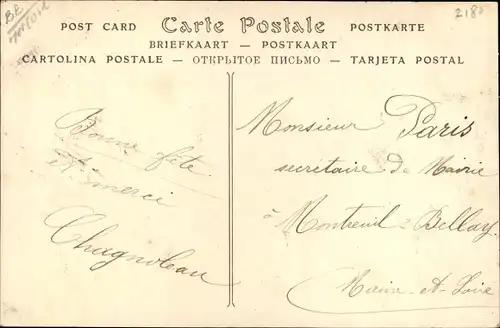 2180
POST CARD Carte Postale POSTKARTE
BRIEFKAART — POSTKAART
CARTOLINA POSTALE — ОТКРЫТОЕ ПИСЬМО — TARJETA POSTAL
Bonne fête
et merci
Chagnoleau
Monsieur Paris
secretaire de Mairie
à Montreuil-Bellay
Maine-et-Loire